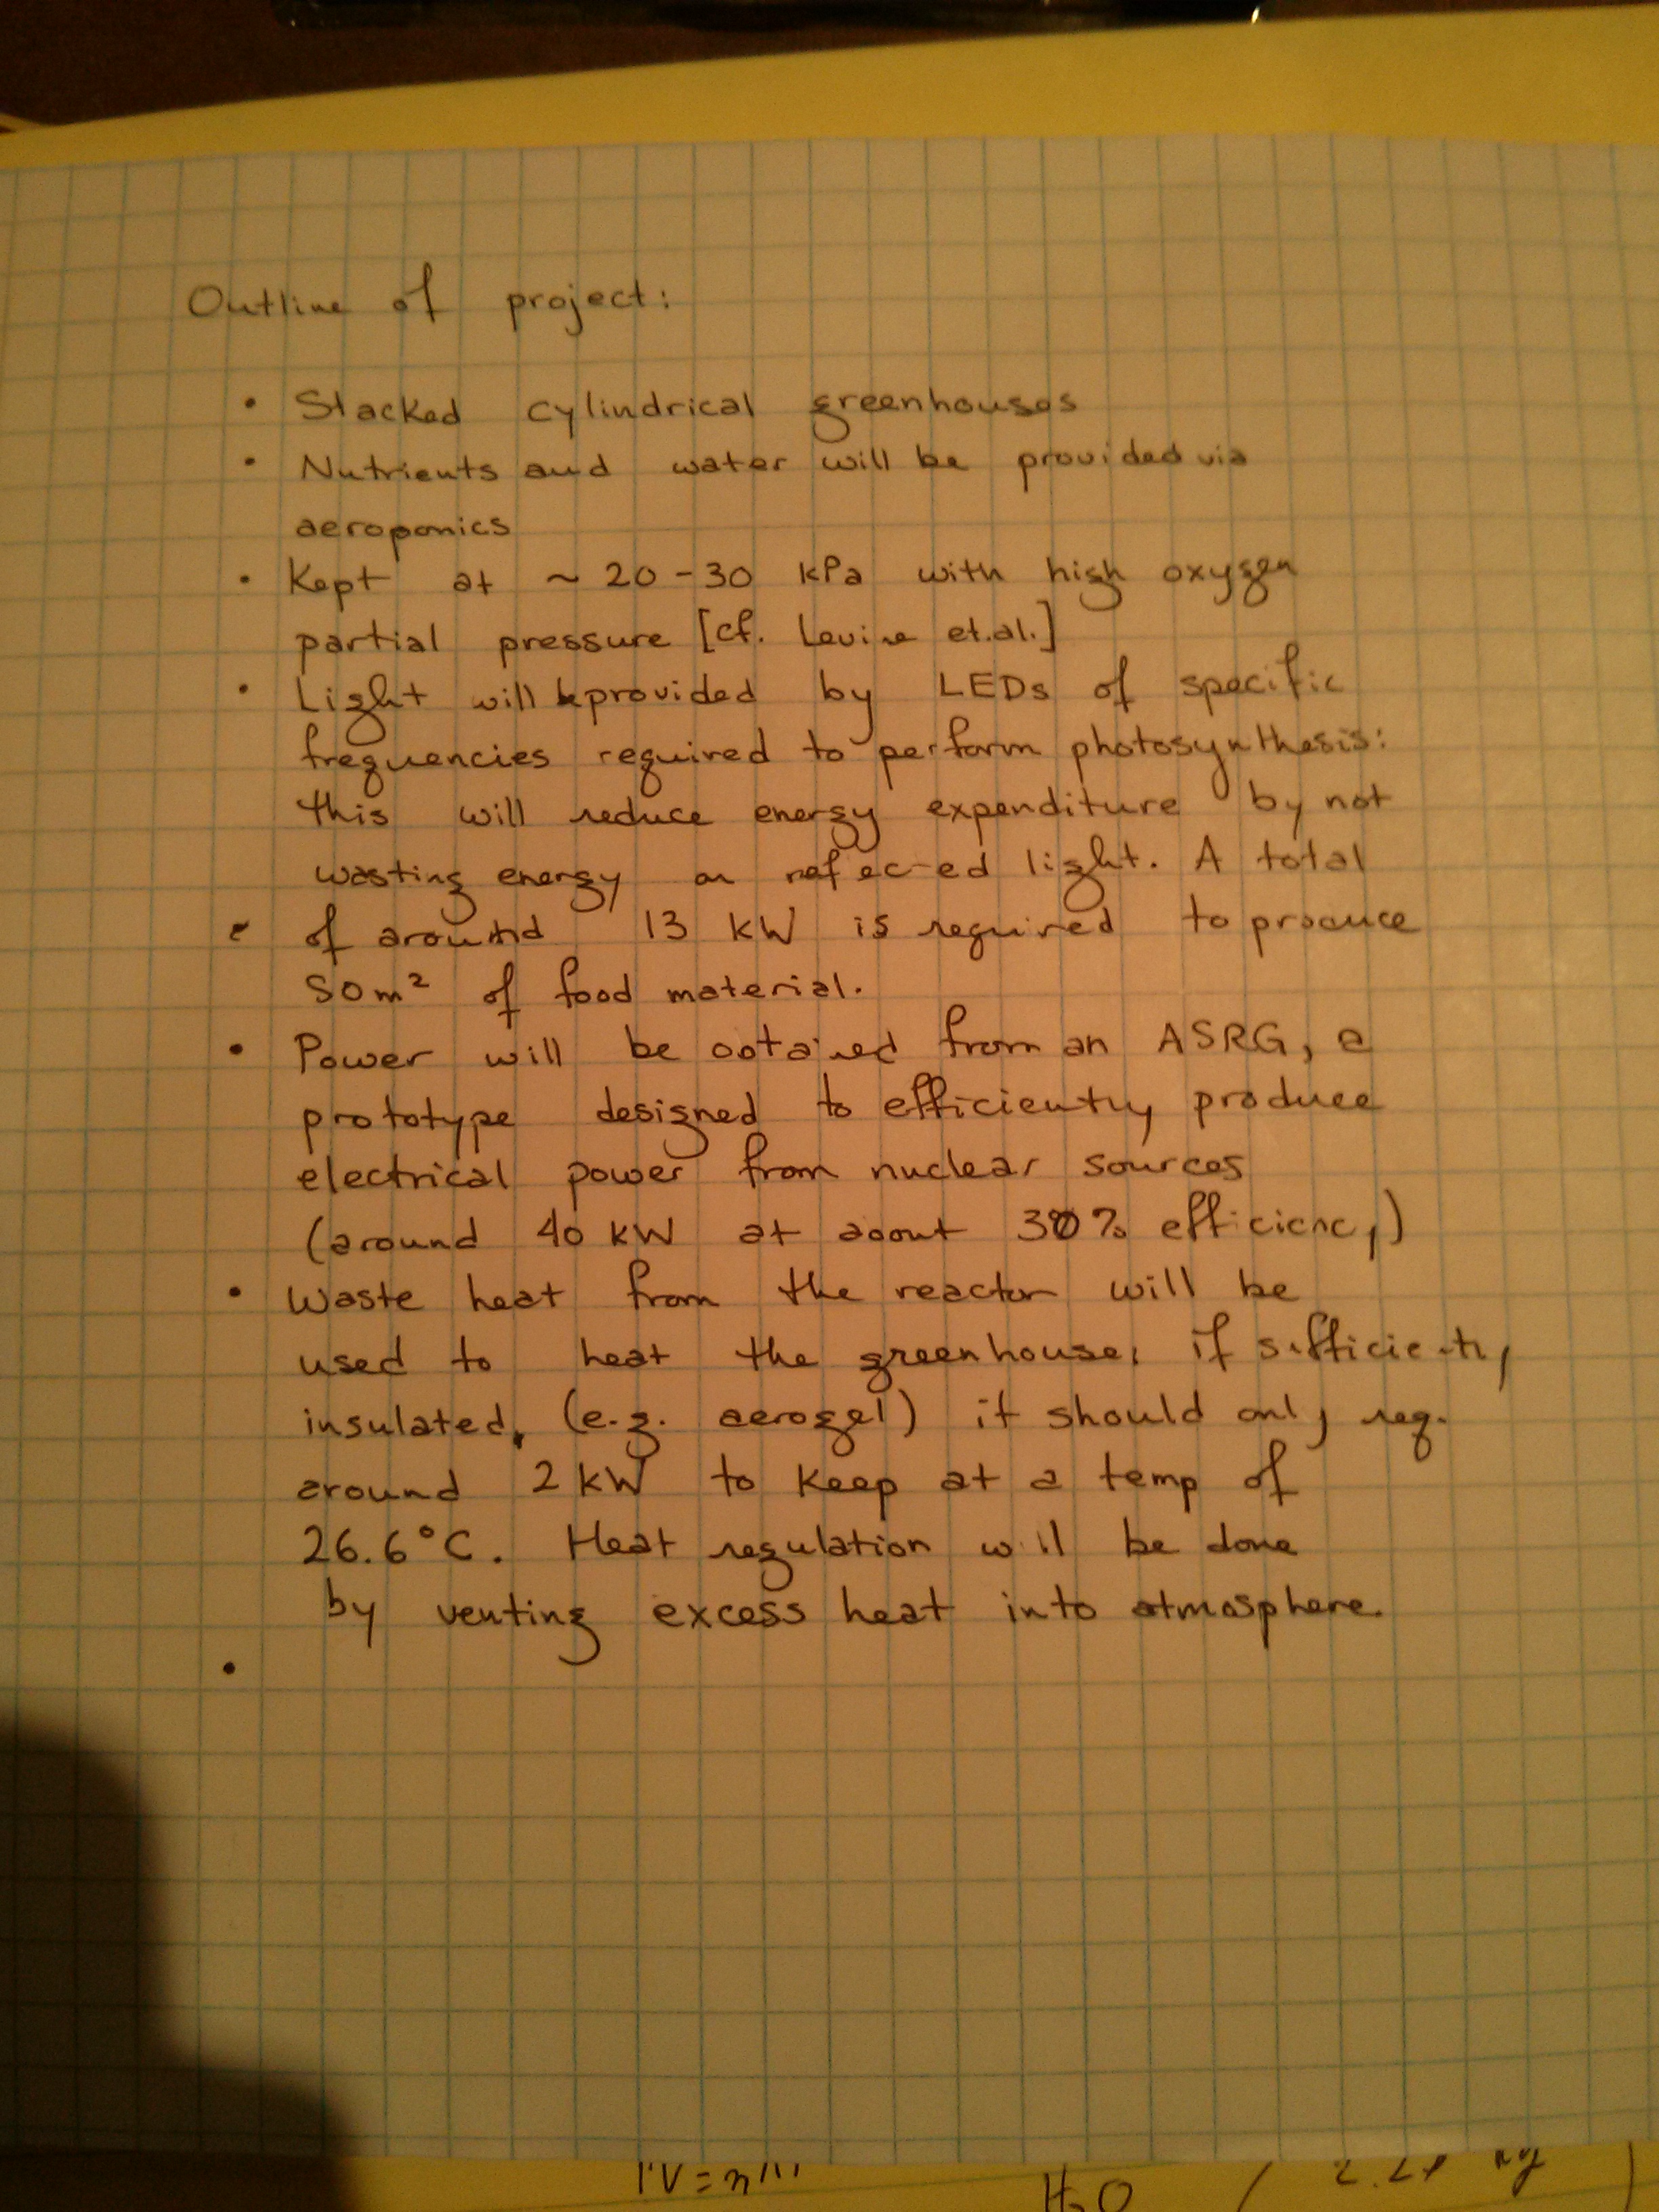 Outline of project:
• Stacked cylindrical greenhouses
• Nutrients and water will be provided via
aeroponics
• Kept at ~ 20-30 kPa with high oxygen
partial pressure [cf. Levine et.al.]
• Light will be provided by LEDs of specific
frequencies required to perform photosynthesis:
this will reduce energy expenditure by not
wasting energy on reflected light. A total
• of around 13 kW is required to produce
50m² of food material.
• Power will be obtained from an ASRG, a
prototype designed to efficiently produce
electrical power from nuclear sources
(around 40 kW at about 30% efficiency)
• Waste heat from the reactor will be
used to heat the greenhouse, if sufficiently
insulated, (e.g. aerogel) it should only req.
around 2 kW to keep at a temp of
26.6°C. Heat regulation will be done
by venting excess heat into atmosphere.
•
H₂O